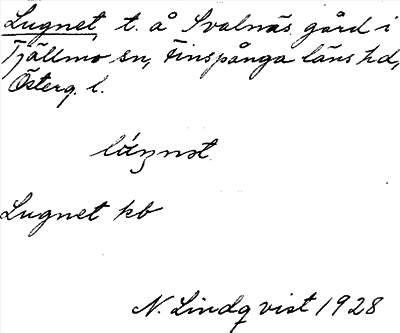 Lugnet, t. å Svalnäs gård i
Tjällmo sn, Finspånga läns hd,
Österg. l.
Lugnet kb
N. Lindqvist 1928